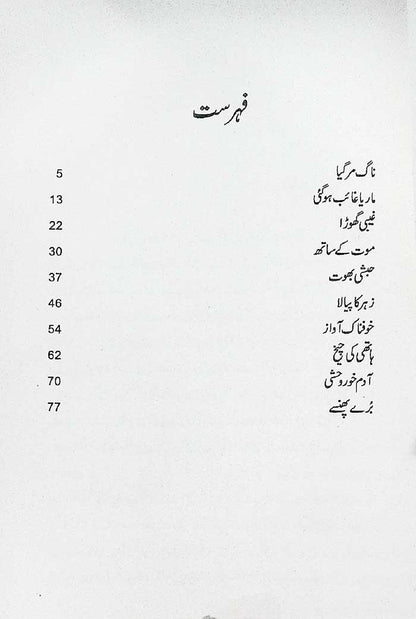 فہرست
ناگ مر گیا 5
ماریا غائب ہو گئی 13
غیبی گھوڑا 22
موت کے ساتھ 30
حبشی بھوت 37
زہر کا پیالا 46
خوفناک آواز 54
ہاتھی کی چیخ 62
آدم خور وحشی 70
بُرے پھنسے 77